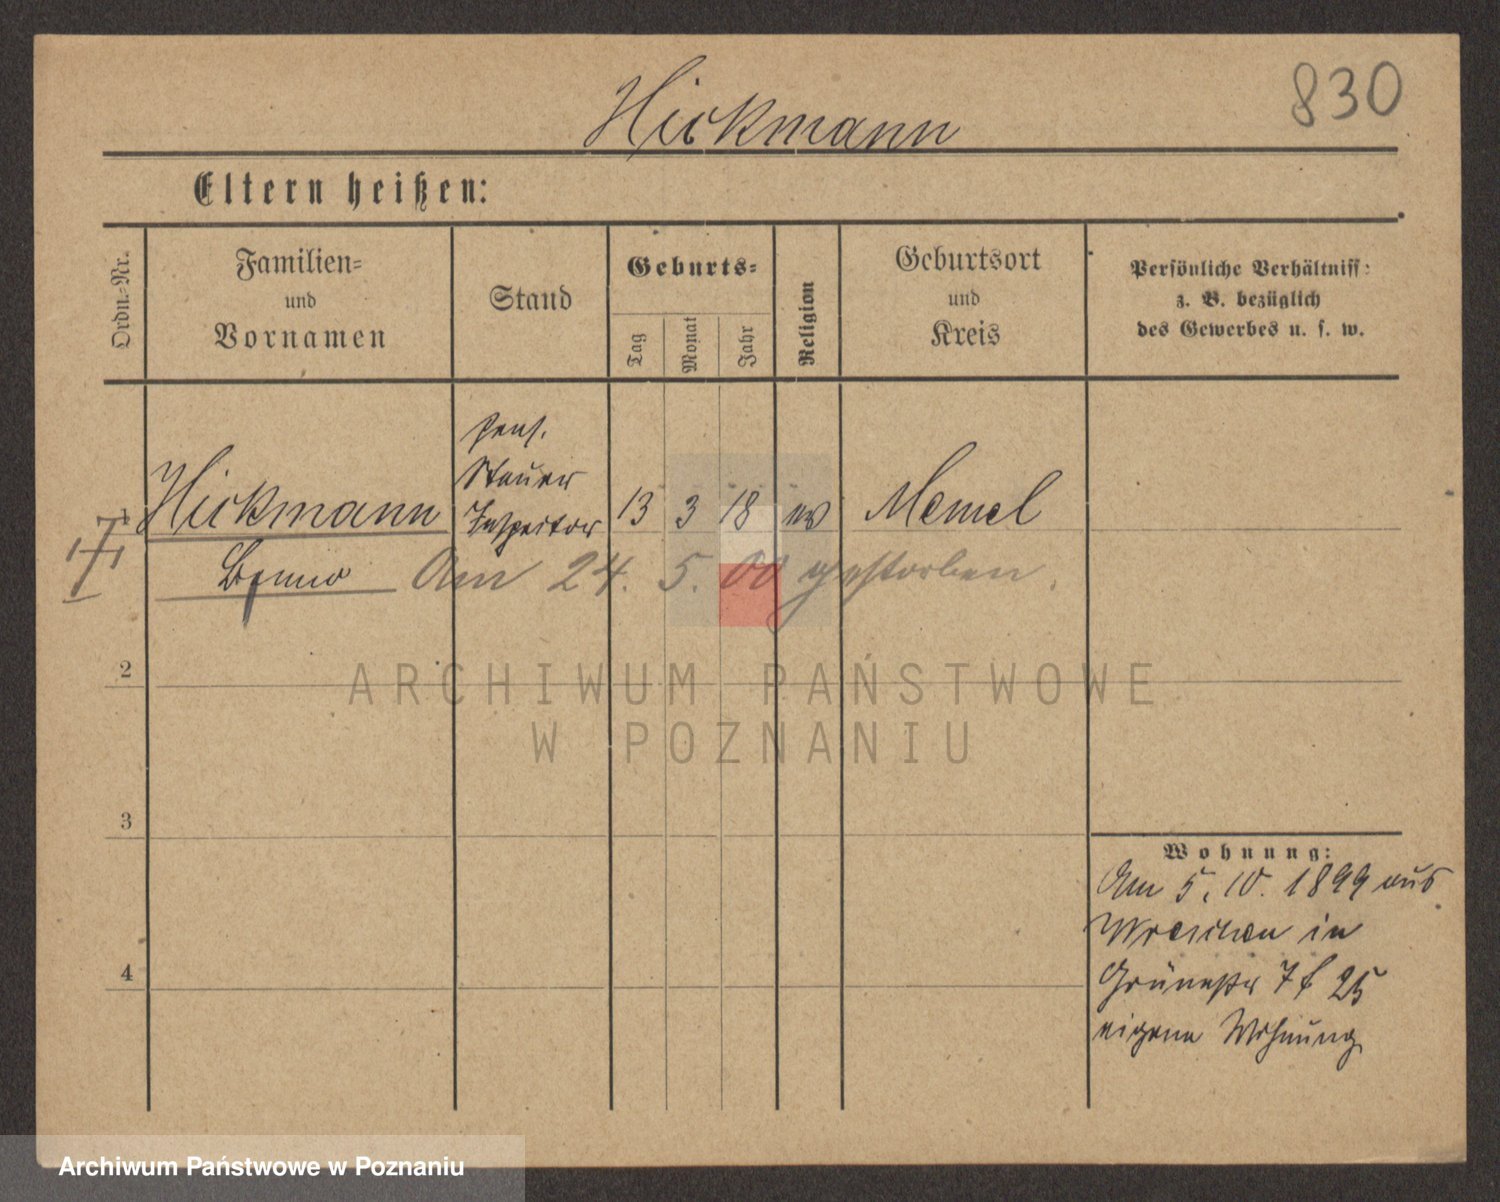 Hickmann
830
Eltern heißen:
Ordn.-Nr.
Familien-
und
Vornamen
Stand
Geburts-
Tag
Monat
Jahr
Religion
Geburtsort
und
Kreis
Persönliche Verhältniss:
z. B. bezüglich
des Gewerbes u. s. w.
Hickmann
Benno
pens.
Steuer
Inspector
13 3 18 ev Memel
Am 24. 5. 00 gestorben.
2
3
4
Wohnung:
Am 5. 10. 1899 aus
Wreschen in
Grünestr 7 b 25
eigene Wohnung
ARCHIWUM PAŃSTWOWE
W POZNANIU
Archiwum Państwowe w Poznaniu